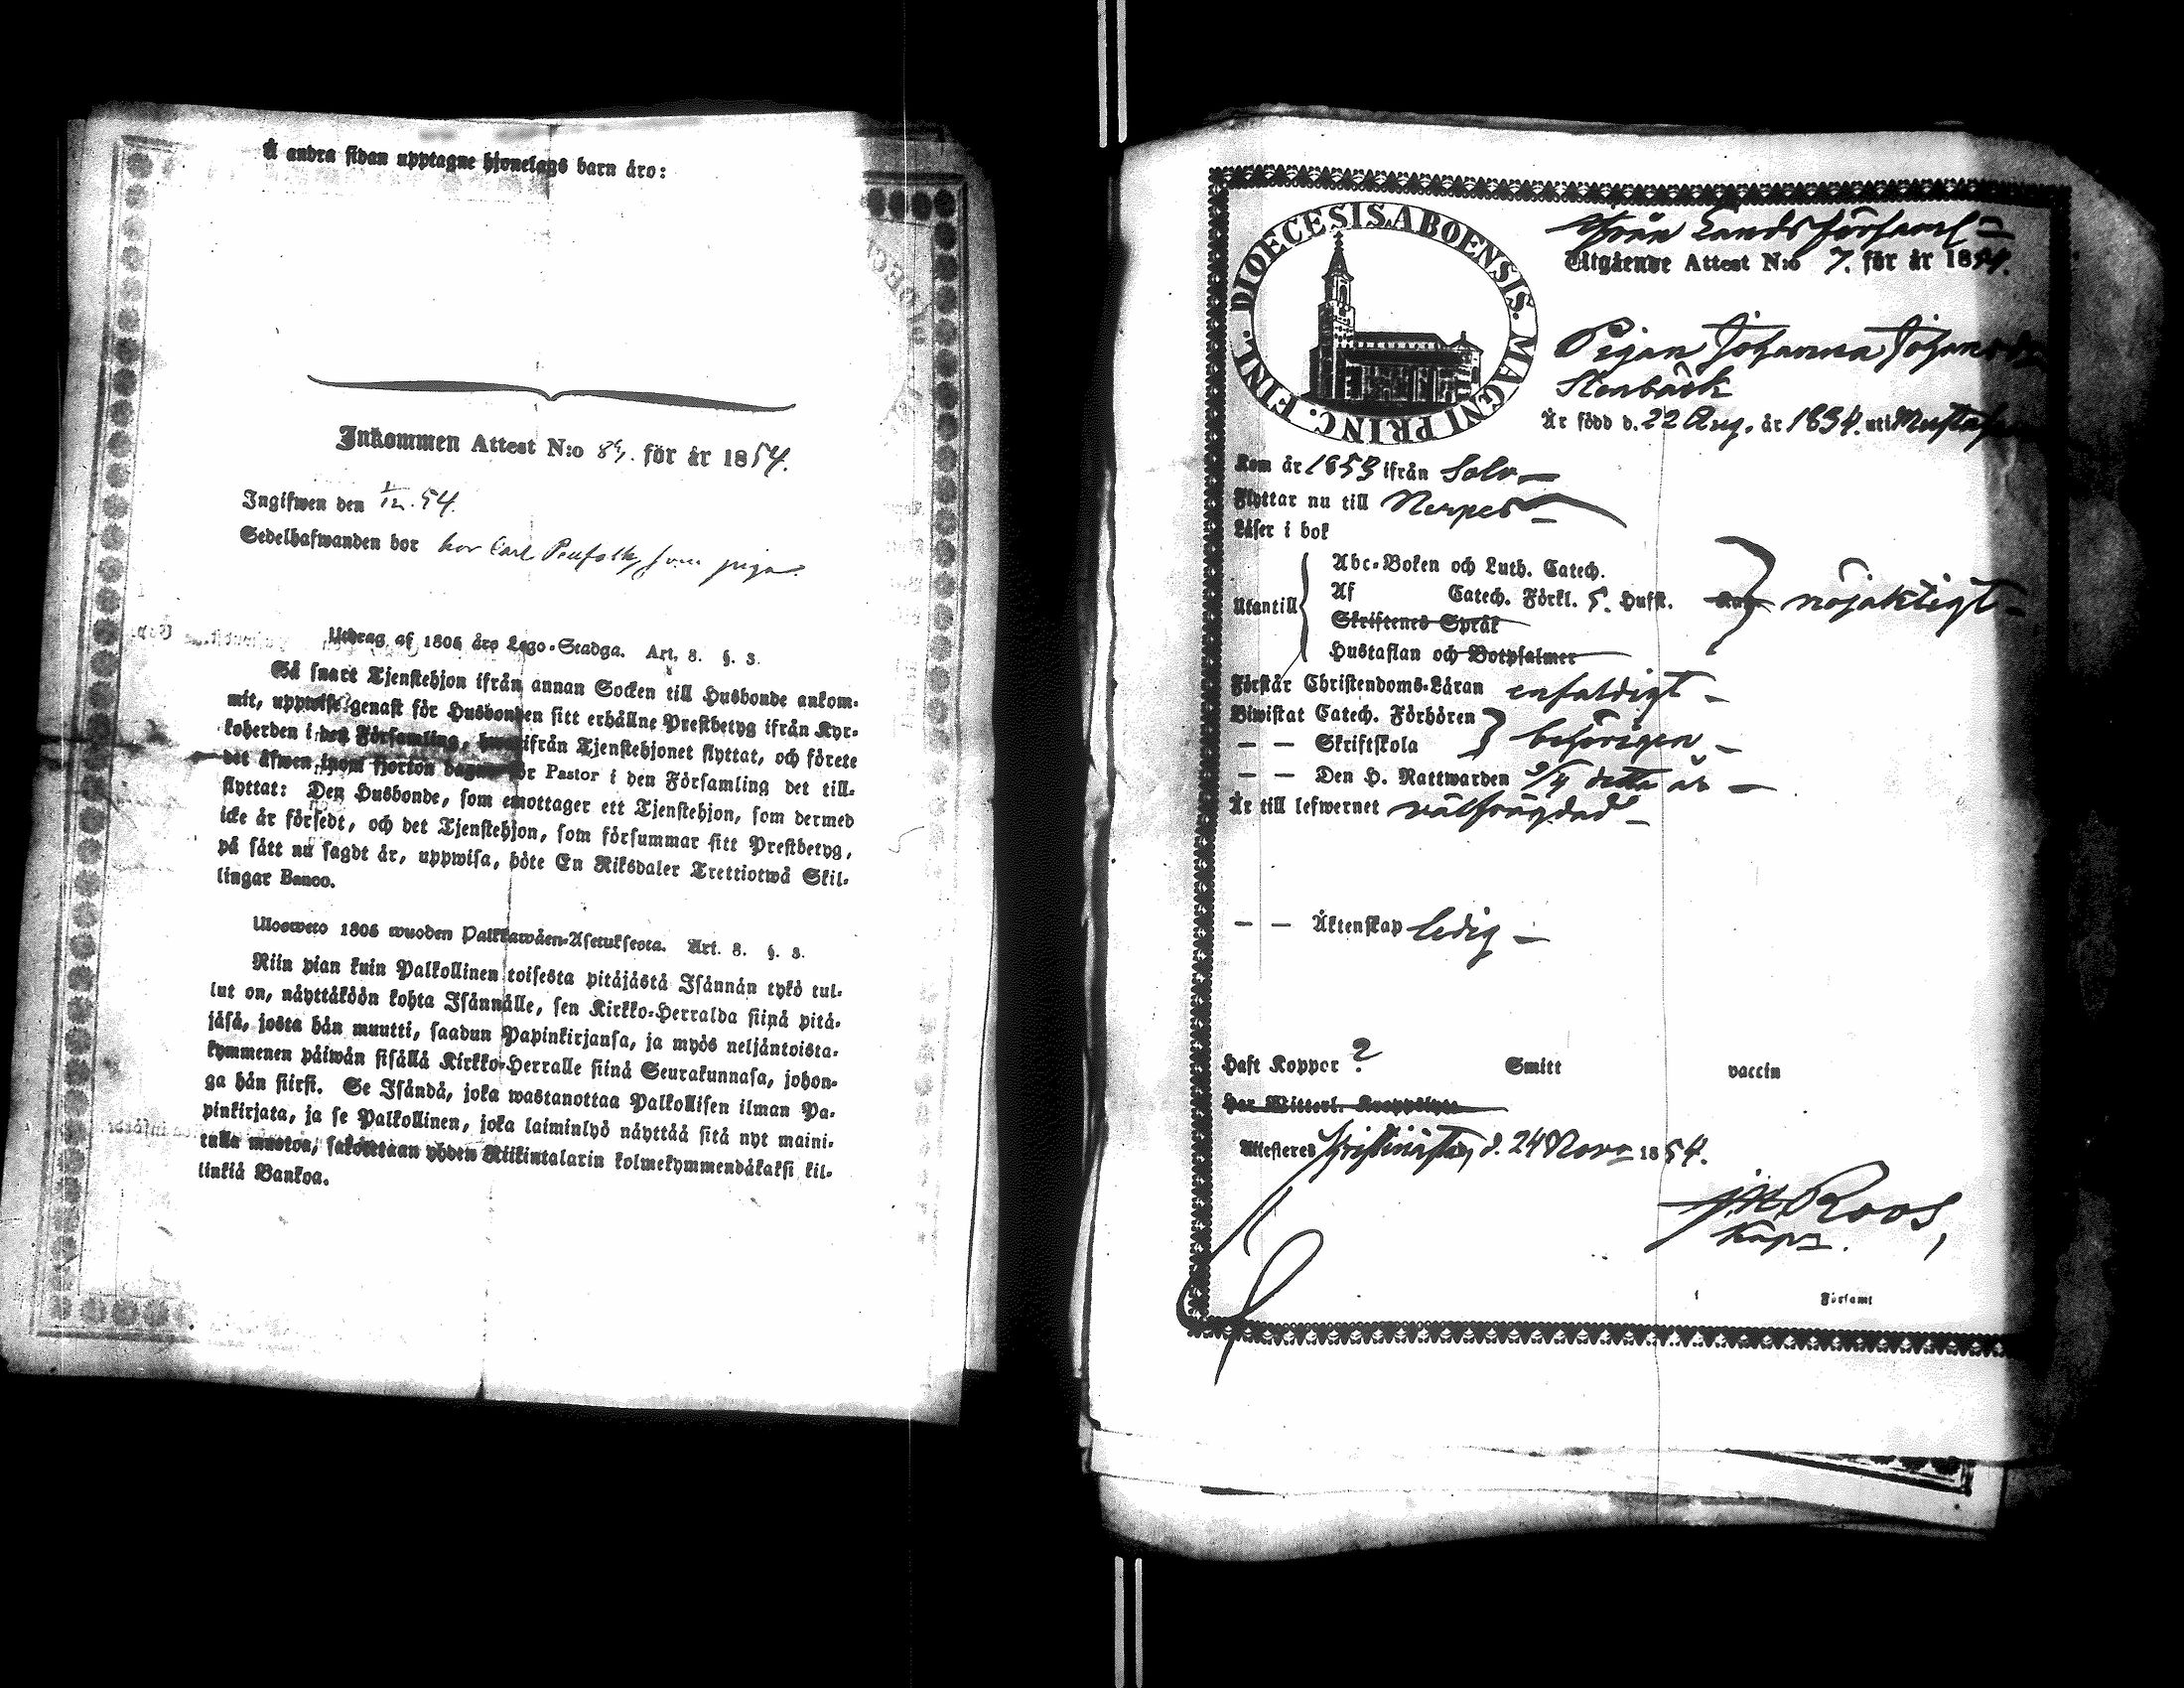 Å andra sidan upptagne hjonelags barn äro:
Inkommen Attest N:o 89. för år 1854.
Ingifwen den 1/12. 54.
Sedelhafwanden bor hos Carl som piga.
Utdrag af 1805 års Lego-Stadga. Art. 8. §. 3.
Så snart Tjenstehjon ifrån annan Socken till Husbonde ankom-
mit, uppwise genast för Husbonden sitt erhållne Prestbetyg ifrån Kyr-
koherden i den Församling, hwarifrån Tjenstehjonet flyttat, och förete
det äfwen inom fjorton dagar för Pastor i den Församling det till-
flyttat: Den Husbonde, som emottager ett Tjenstehjon, som dermed
icke är försedt, och det Tjenstehjon, som försummar sitt Prestbetyg,
på sätt nu sagdt är, uppwisa, böte En Riksdaler Trettiotwå Skil-
lingar Banco.
Ulosweto 1805 wuoden Palkkawäen-Asetuksesta. Art. 8. §. 3.
Niin pian kuin Palkollinen toisesta pitäjästä Isännän tykö tul-
lut on, näyttäköön kohta Isännälle, sen Kirkko-Herralda siinä pitä-
jäsä, josta hän muutti, saadun Papinkirjansa, ja myös neljäntoista-
kymmenen päiwän sisällä Kirkko-Herralle siinä Seurakunnasa, johon-
ga hän siirsi. Se Isändä, joka wastanottaa Palkollisen ilman Pa-
pinkirjata, ja se Palkollinen, joka laiminlyö näyttää sitä nyt maini-
tulla muotoa, sakotetaan yhden Riikintalarin kolmekymmendäkaksi kil-
linkiä Bankoa.
DIOECESIS ABOENSIS. MAGNI PRINC. FINL.
Från Landsförsaml
Utgående Attest N:o 7. för år 1854.
Pigan Johanna Johansdr
Stenbäck
Är född d. 22 Aug. år 1834. uti
Kom år 1853 ifrån Solv
Flyttar nu till Nerpes
Läser i bok
Utantill
Abc-Boken och Luth. Catech.
Af Catech. Förkl. 5. Hufst. nöjaktigt
Skriftenes Språk
Hustaflan och Botpsalmer
Förstår Christendoms-Läran enfaldigt
Biwistat Catech. Förhören
— — Skriftskola behörigen
— — Den H. Nattwarden 9/4 detta år
Är till lefwernet välfrägdad
— — Äktenskap ledig
Haft Koppor ? Smitt vaccin
Har Witterl. Kroppslyte
Attesteres Kristinestad, d. 24 Nov. 1854.
J. N. Roos,
Kapn.
i Församl